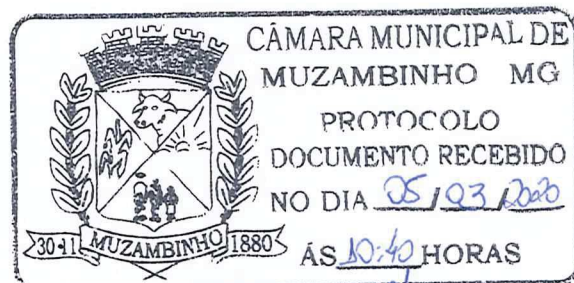 CÂMARA MUNICIPAL DE
MUZAMBINHO MG
PROTOCOLO
DOCUMENTO RECEBIDO
NO DIA 05/03/2020
ÁS 10:40 HORAS
30-11 MUZAMBINHO 1880